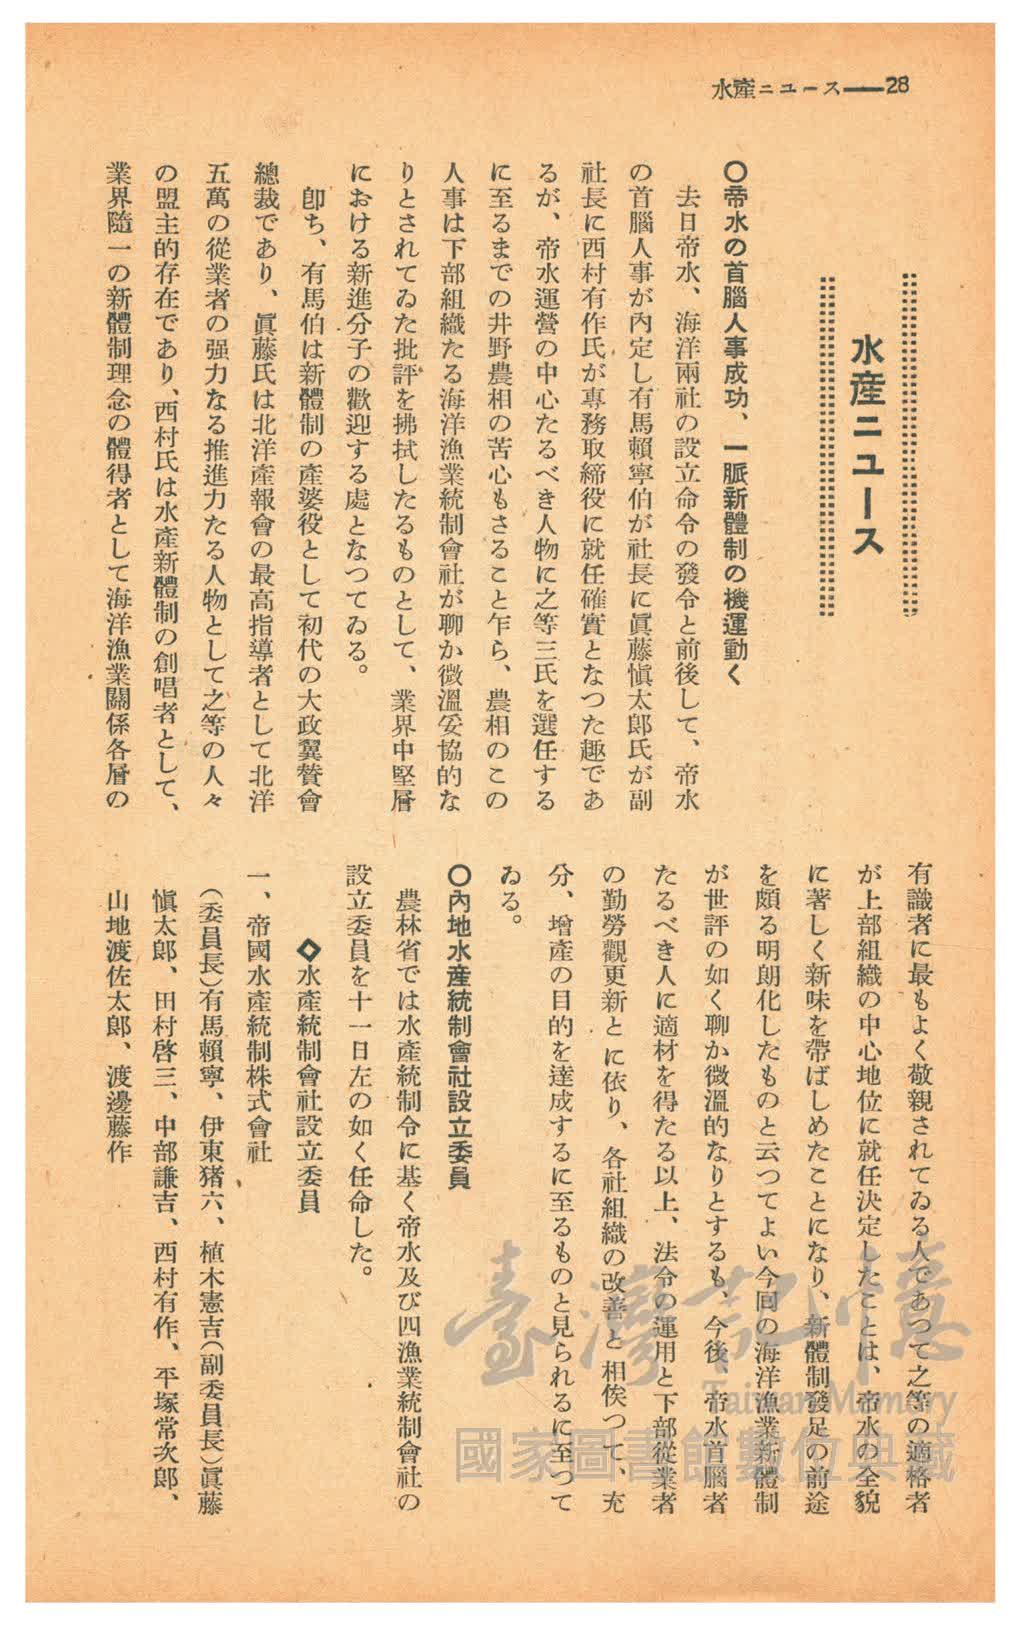 水產ニユース——28
水產ニユース
〇帝水の首腦人事成功、一脈新體制の機運動く
去日帝水、海洋兩社の設立命令の發令と前後して、帝水
の首腦人事が內定し有馬賴寧伯が社長に眞藤愼太郎氏が副
社長に西村有作氏が專務取締役に就任確實となつた趣であ
るが、帝水運營の中心たるべき人物に之等三氏を選任する
に至るまでの井野農相の苦心もさること乍ら、農相のこの
人事は下部組織たる海洋漁業統制會社が聊か微溫妥協的な
りとされてゐた批評を拂拭したるものとして、業界中堅層
における新進分子の歡迎する處となつてゐる。
卽ち、有馬伯は新體制の產婆役として初代の大政翼贊會
總裁であり、眞藤氏は北洋產報會の最高指導者として北洋
五萬の從業者の强力なる推進力たる人物として之等の人々
の盟主的存在であり、西村氏は水產新體制の創唱者として、
業界隨一の新體制理念の體得者として海洋漁業關係各層の
有識者に最もよく敬親されてゐる人であつて之等の適格者
が上部組織の中心地位に就任決定したことは、帝水の全貌
に著しく新味を帶ばしめたことになり、新體制發足の前途
を頗る明朗化したものと云つてよい今回の海洋漁業新體制
が世評の如く聊か微溫的なりとするも、今後、帝水首腦者
たるべき人に適材を得たる以上、法令の運用と下部從業者
の勤勞觀更新とに依り、各社組織の改善と相俟つて、充
分、增產の目的を達成するに至るものと見られるに至つて
ゐる。
〇內地水產統制會社設立委員
農林省では水產統制令に基く帝水及び四漁業統制會社の
設立委員を十一日左の如く任命した。
◇水產統制會社設立委員
一、帝國水產統制株式會社
（委員長）有馬賴寧、伊東猪六、植木憲吉（副委員長）眞藤
愼太郎、田村啓三、中部謙吉、西村有作、平塚常次郎、
山地渡佐太郎、渡邊藤作
臺灣記憶
Taiwan Memory
國家圖書館數位典藏